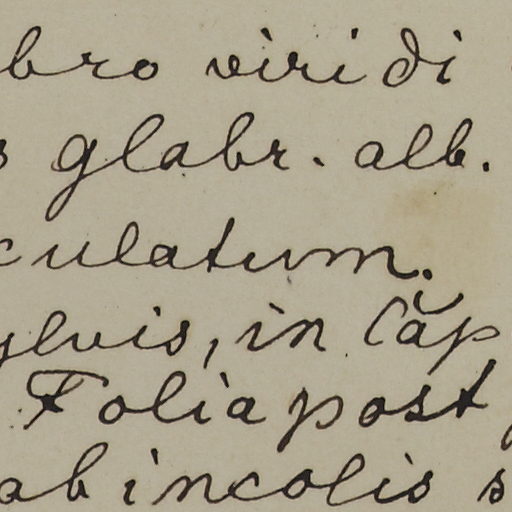 bro viridi
s glabr. alb.
culatum.
ylvis, in Căp
Folia post
ab incolis s